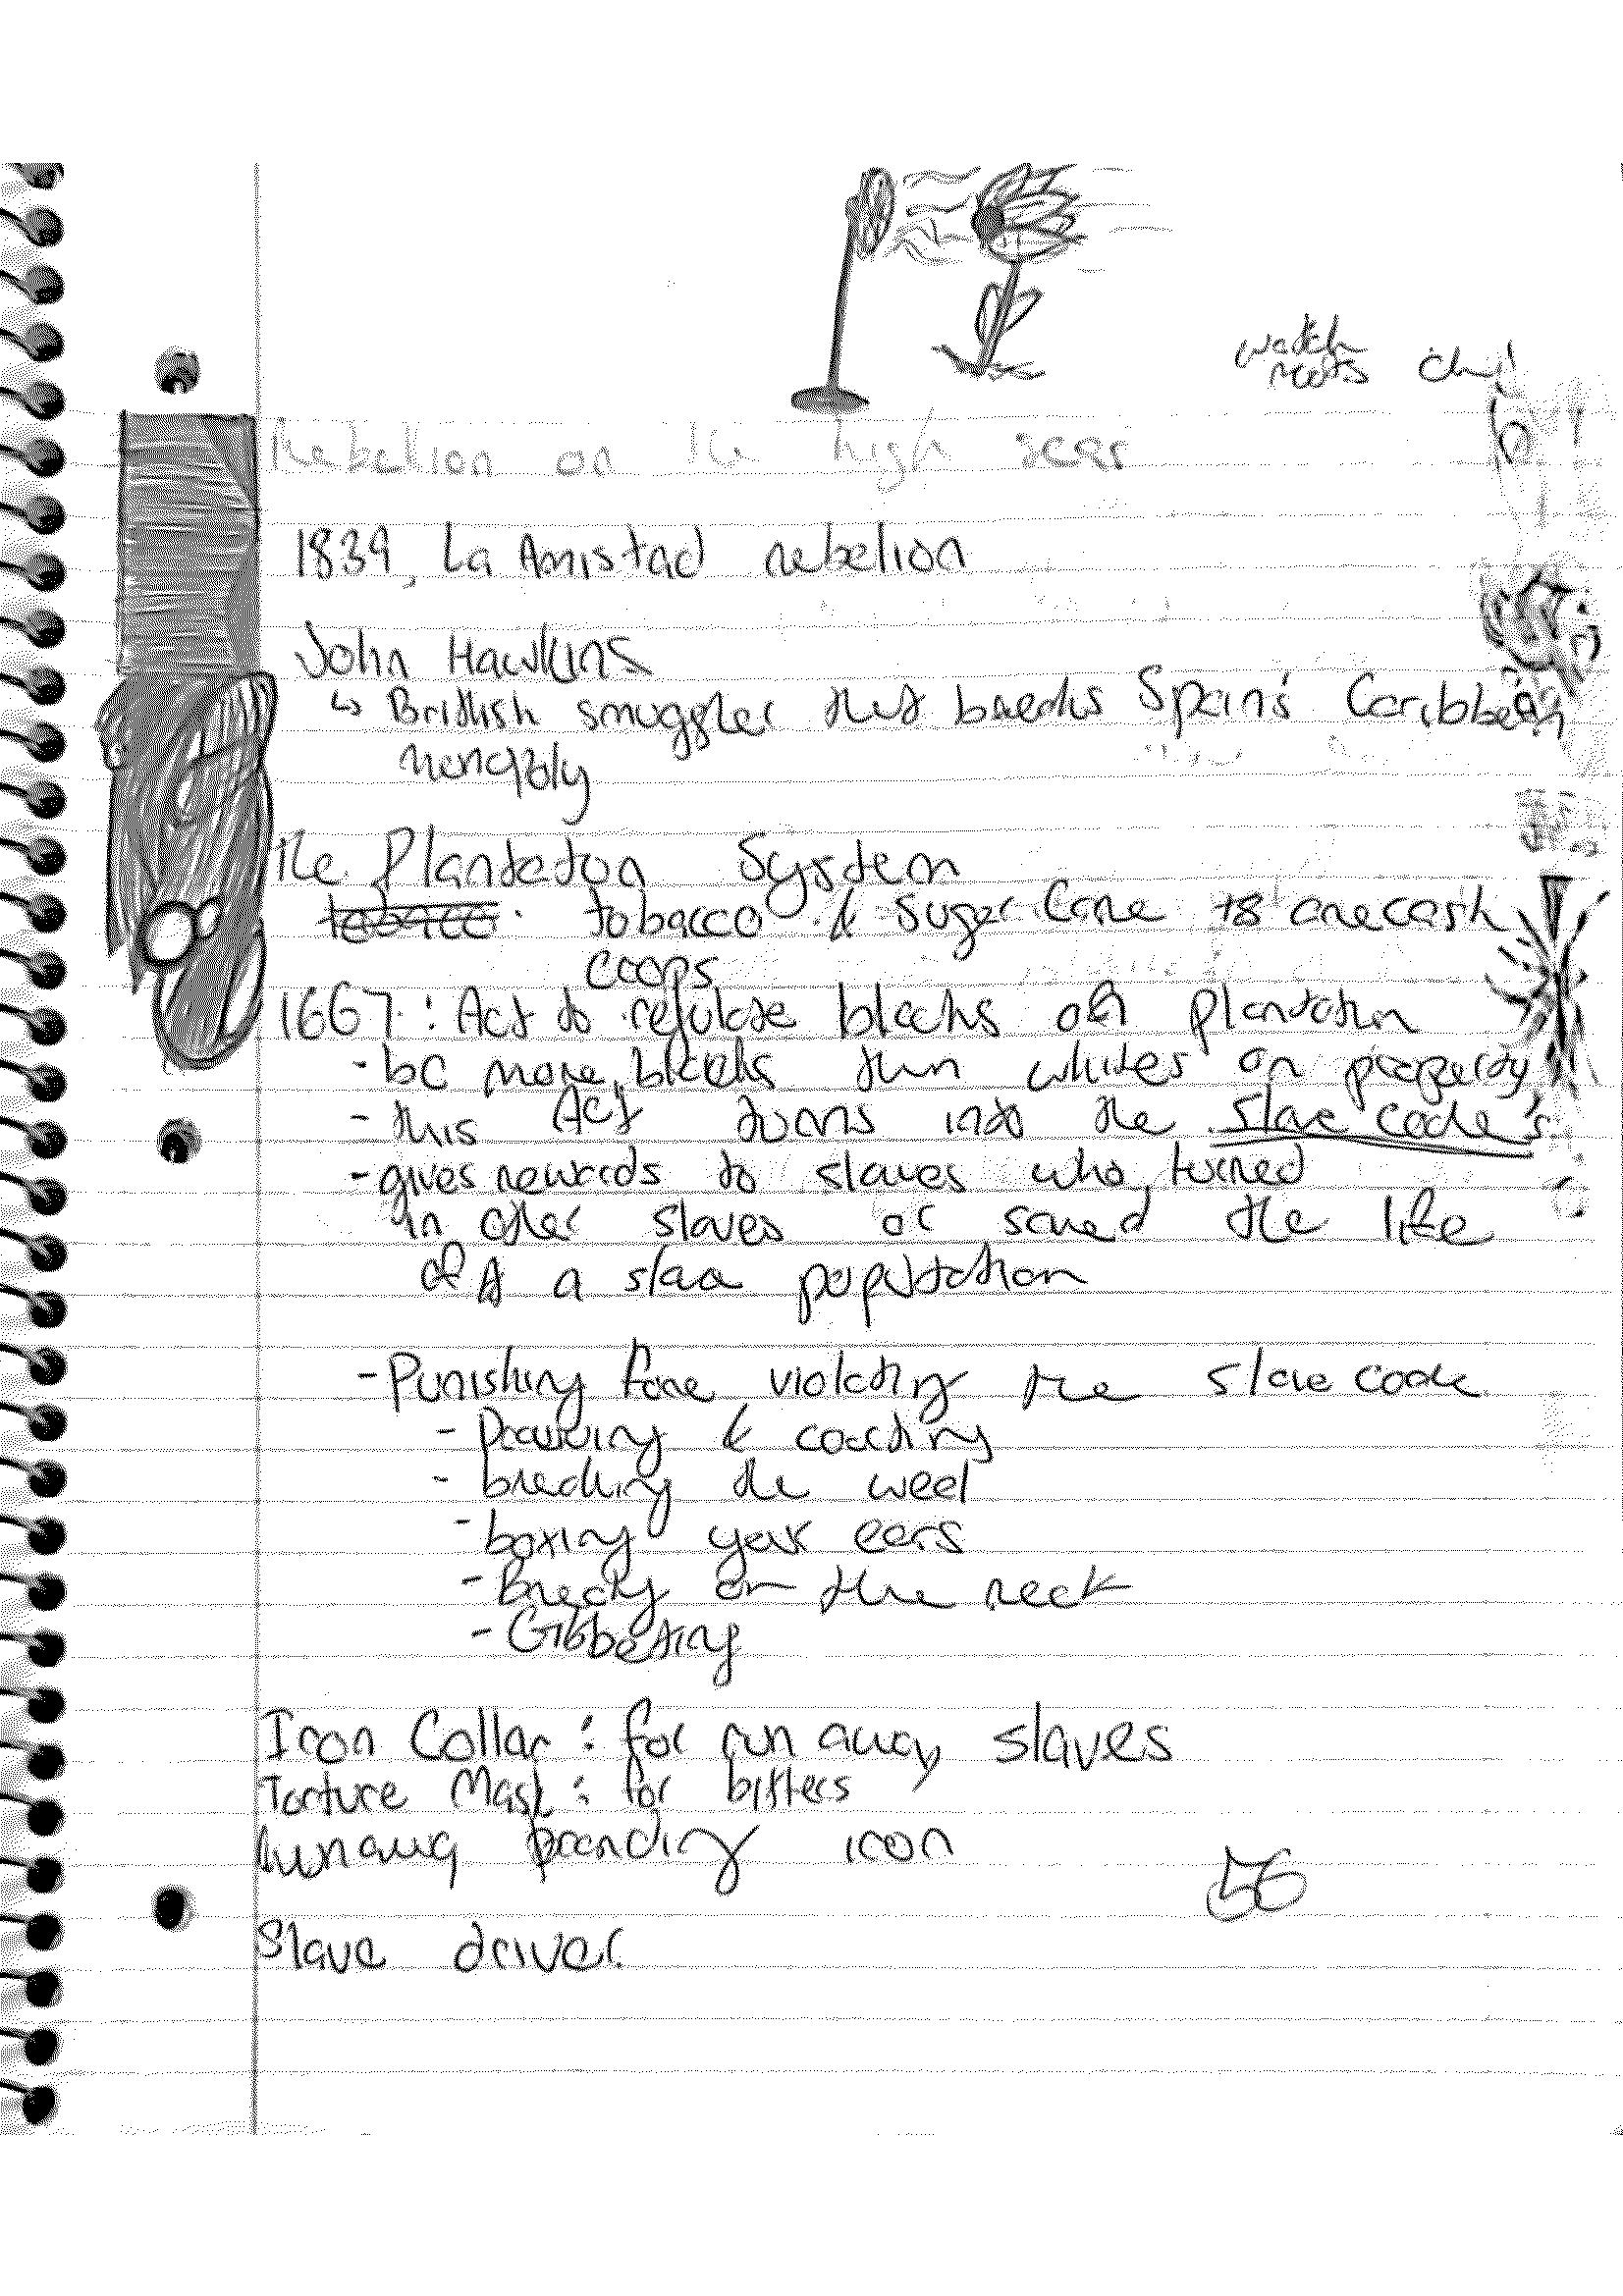 watch
roots
Rebellion on the high seas
1839, La Amistad rebelion
John Hawkins
↳ Brittish smuggler that breaks Spain's Caribbean
monopoly
The Plantation System
tobacco & Sugar Cane are cash
coops
1667: Act to regulate blacks on plantation
- bc more blacks then whites on property
- this Act turns into the slave code's
- gives rewards to slaves who turned
in other slaves or saved the life
of a slave population
- Punishing for violating the slave code
- &
- breaking the weel
- boxing your ears
- on the neck
- Gibbeting
Iron Collar : for run away slaves
Torture Mask : for bitters
Runaway branding iron
56
Slave driver